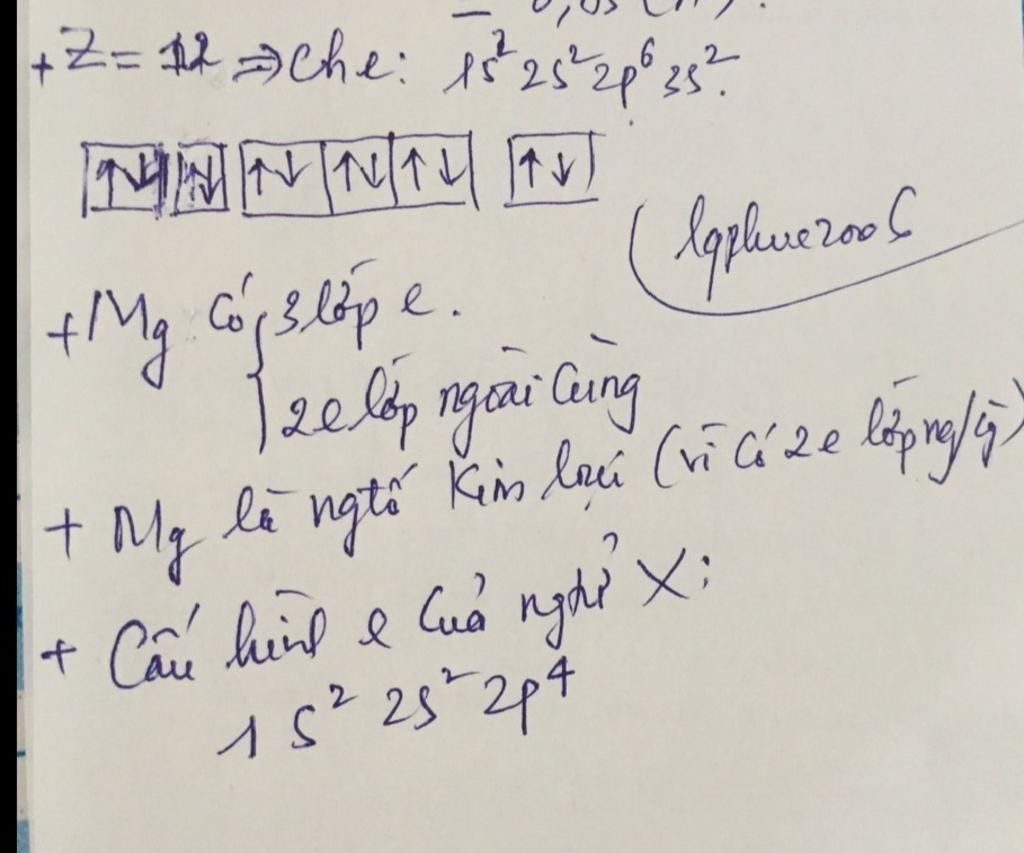 = 0,05 (
+ Z = 12 ⇒ Che: 1s² 2s² 2p⁶ 3s².
↑↓ ↑↓ ↑↓ ↑↓ ↑↓ ↑↓
lqphuc2005
+ Mg có { 3 lớp e.
2e lớp ngoài cùng
+ Mg là ngtố kim loại (vì có 2e lớp ng/cg)
+ Cấu hình e của ngtử X:
1s² 2s² 2p⁴